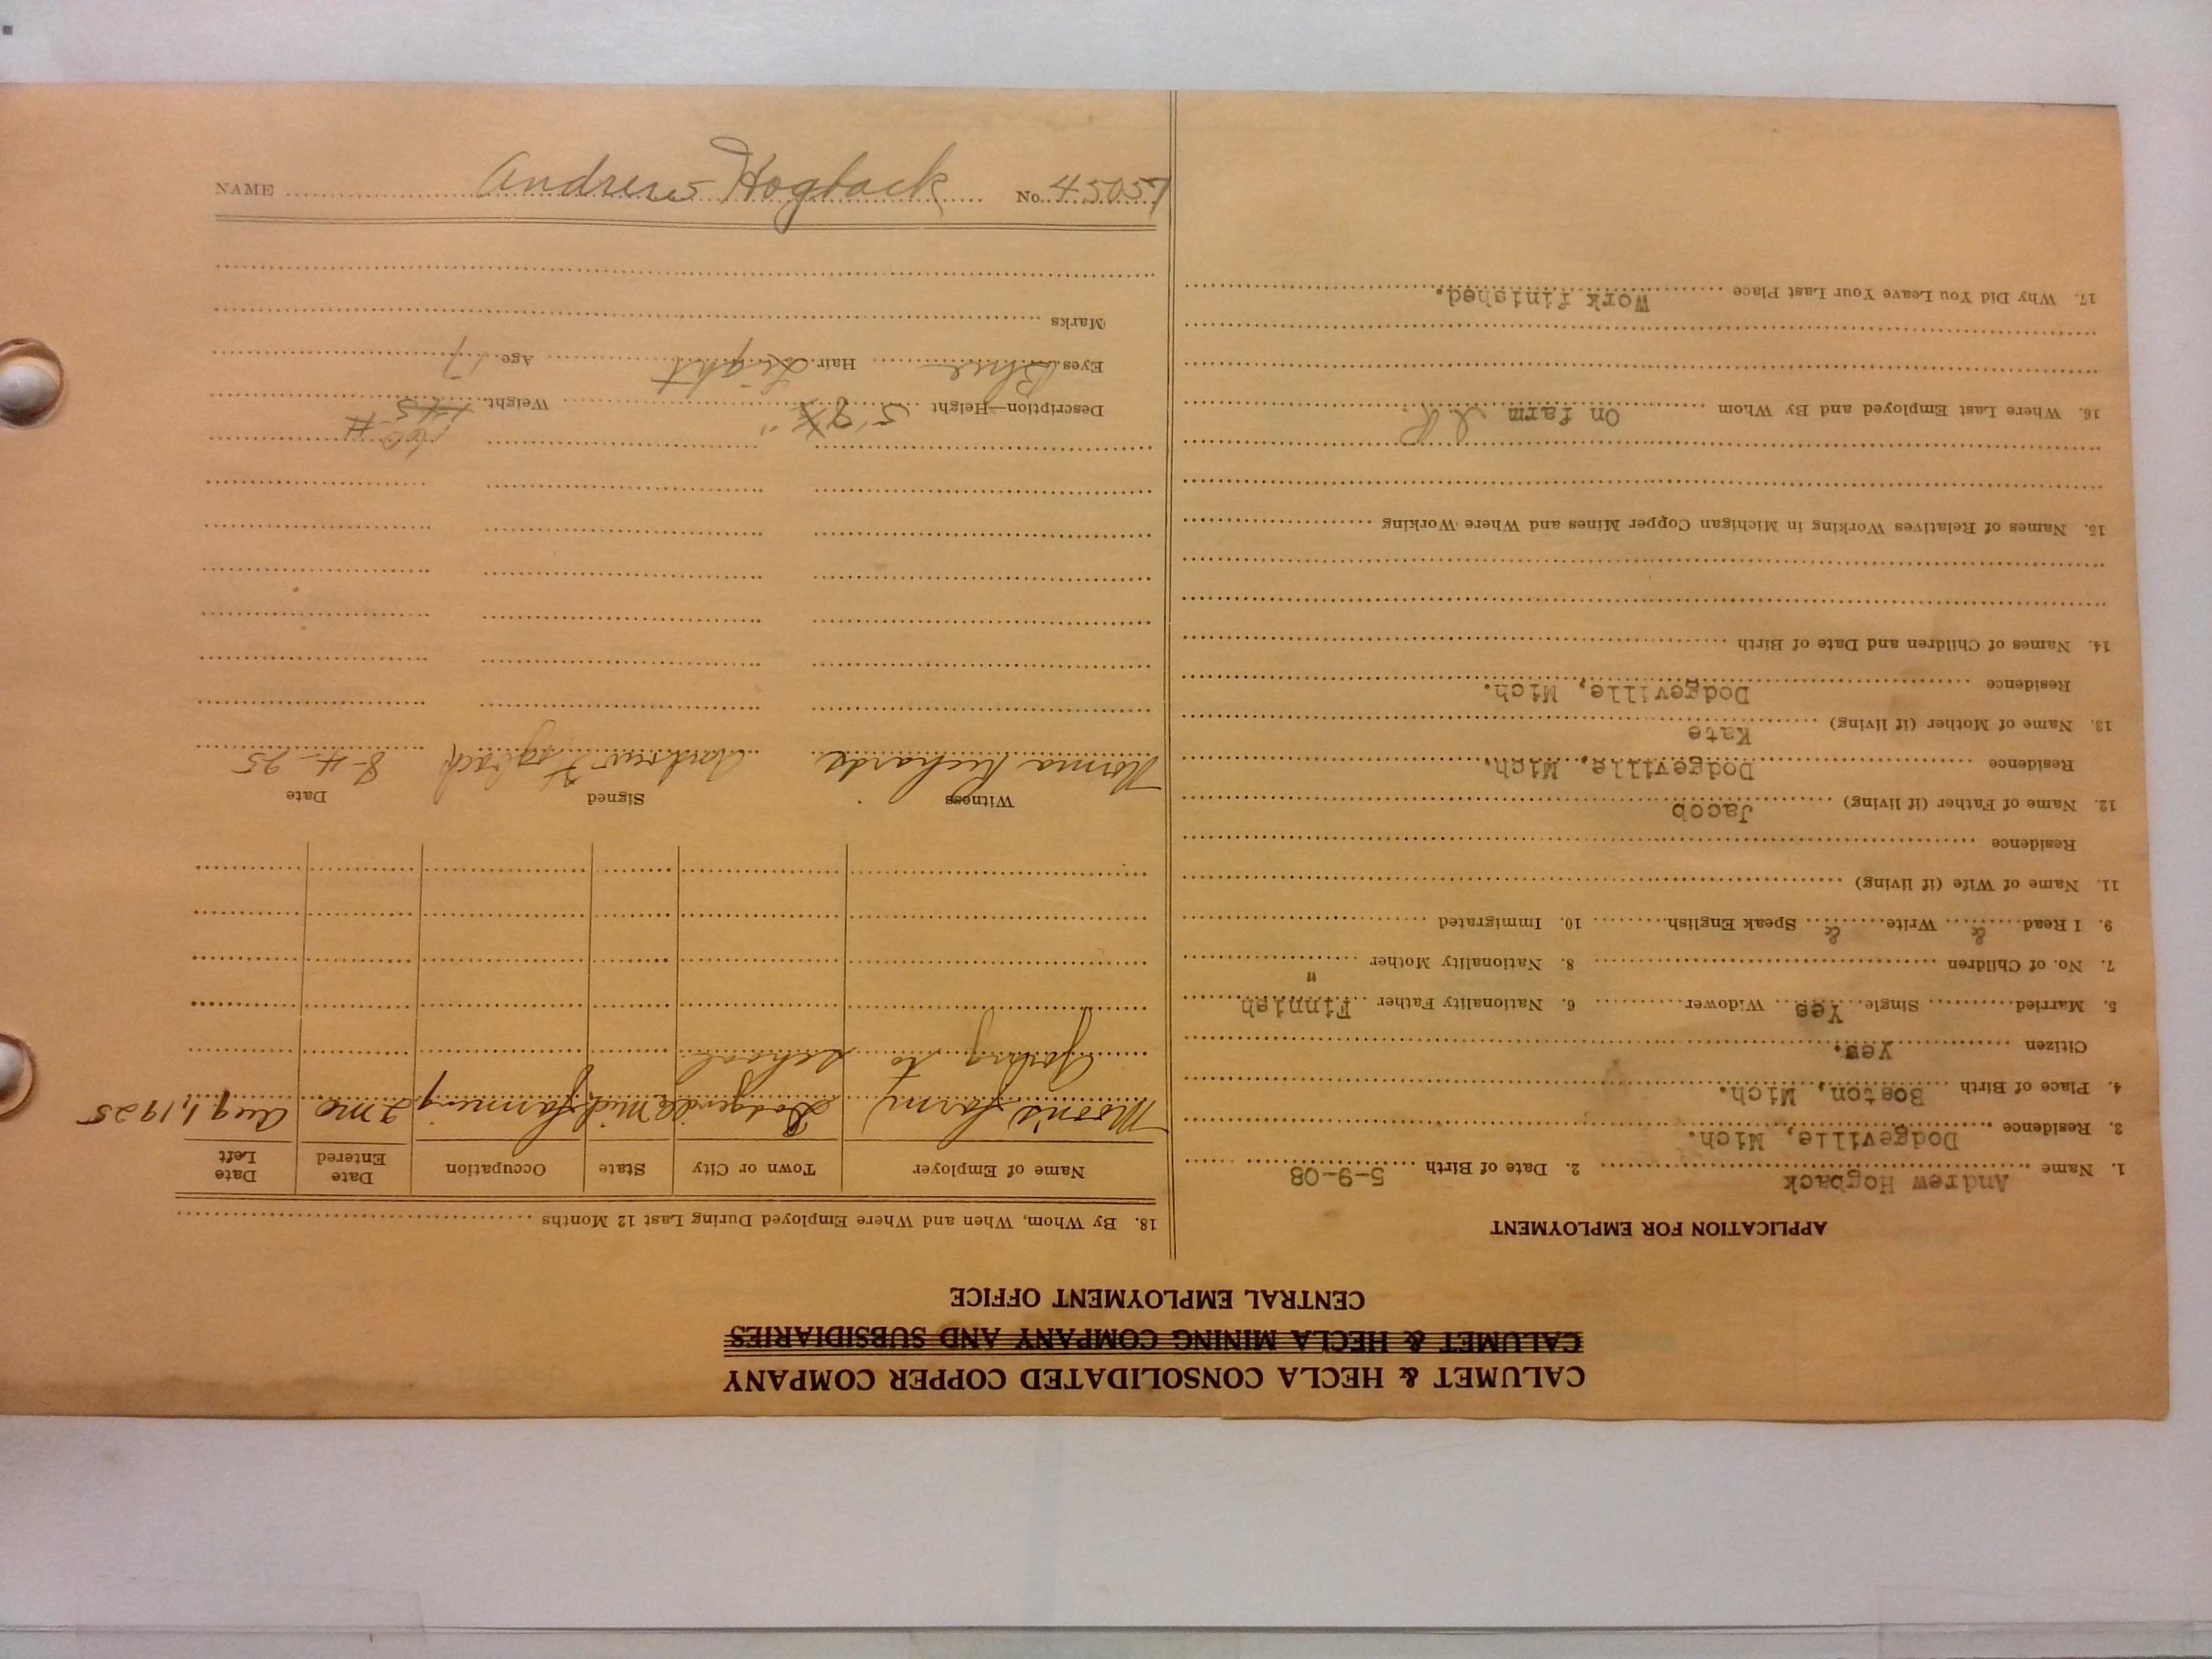 CALUMET & HECLA CONSOLIDATED COPPER COMPANY
CALUMET & HECLA MINING COMPANY AND SUBSIDIARIES
CENTRAL EMPLOYMENT OFFICE
APPLICATION FOR EMPLOYMENT
1. Name Andrew Hogback 2. Date of Birth 5-9-08
3. Residence Dodgeville, Mich.
4. Place of Birth Boston, Mich.
Citizen Yes.
5. Married Single Yes Widower 6. Nationality Father Finnish
7. No. of Children 8. Nationality Mother "
9. I Read & Write & Speak English 10. Immigrated
11. Name of Wife (if living)
Residence
12. Name of Father (if living) Jacob
Residence Dodgeville, Mich.
13. Name of Mother (if living) Kate
Residence Dodgeville, Mich.
14. Names of Children and Date of Birth
15. Names of Relatives Working in Michigan Copper Mines and Where Working
16. Where Last Employed and By Whom On farm
17. Why Did You Leave Your Last Place Work finished.
18. By Whom, When and Where Employed During Last 12 Months
Name of Employer Town or City State Occupation Date Entered Date Left
farm Dodgeville Mich farming 2 mo Aug 1, 1925
Going to school
Witness Signed Date
Norma Richards Andrew Hogback 8-4-25
160 #
Description—Height 5' 8" Weight 145
Eyes Blue Hair Light Age 17
Marks
NAME Andrew Hogback No. 45057